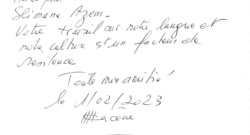 Slimane Azem.
Votre travail sur notre langue et
notre culture est un facteur de
resistence
Toute mon amitié
le 1/02/2023